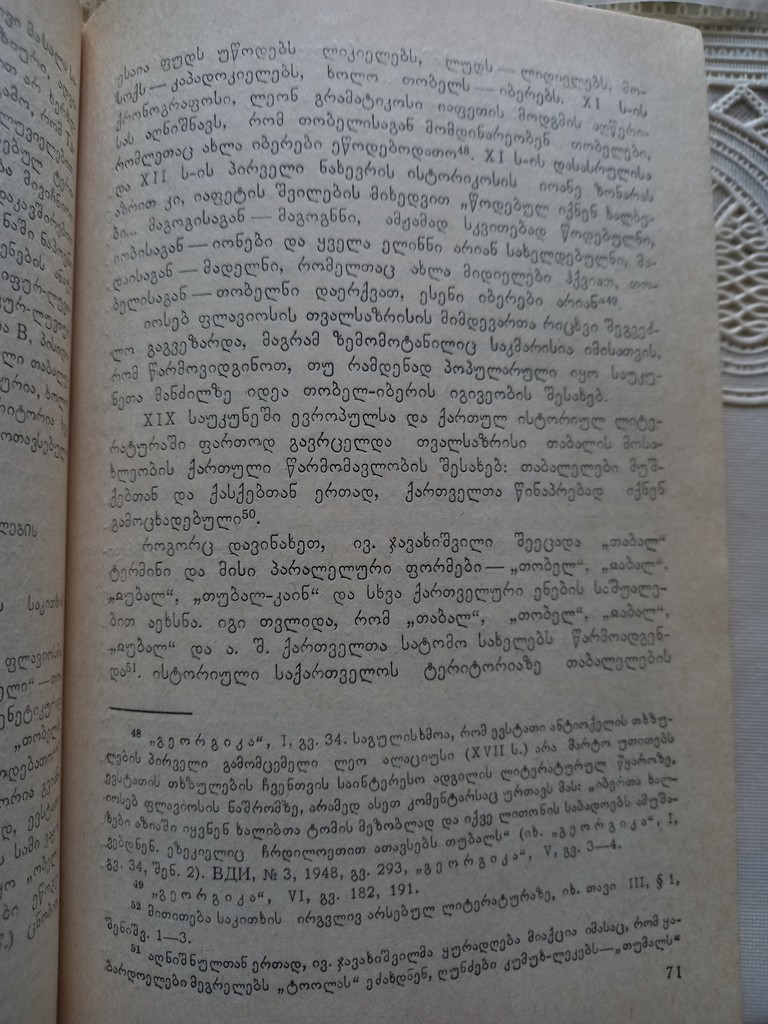 ესაია ფუდს უწოდებს ლიკიელებს, ლუდს — ლიდიელებს, მო-
სოქს — კაპადოკიელებს, ხოლო თობელს — იბერებს. XI ს-ის
ქრონოგრაფოსი, ლეონ გრამატიკოსი იაფეთის მოდგმის აღწერი-
სას აღნიშნავს, რომ თობელისაგან მომდინარეობენ თობელები,
რომლეთაც ახლა იბერები ეწოდებოდათო⁴⁸. XI ს-ის დასასრულისა
და XII ს-ის პირველი ნახევრის ისტორიკოსის იოანე ზონარას
აზრით კი, იაფეტის შვილების მიხედვით „წოდებულ იქნენ ხალხე-
ბი... მაგოგისაგან — მაგოგნნი, ამჟამად სკვითებად წოდებულნი,
იობისაგან — იონები და ყველა ელინნი არიან სახელდებულნი, მა-
დაისაგან — მადელნი, რომელთაც ახლა მიდიელები ჰქვიათ, თო-
ბელისაგან — თობელნი დაერქვათ, ესენი იბერები არიან“⁴⁹.
იოსებ ფლავიოსის თვალსაზრისის მიმდევართა რიცხვი შეგვეძ-
ლო გაგვეზარდა, მაგრამ ზემომოტანილიც საკმარისია იმისათვის,
რომ წარმოვიდგინოთ, თუ რამდენად პოპულარული იყო საუკუ-
ნეთა მანძილზე იდეა თობელ-იბერის იგივეობის შესახებ.
XIX საუკუნეში ევროპულსა და ქართულ ისტორიულ ლიტე-
რატურაში ფართოდ გავრცელდა თვალსაზრისი თაბალის მოსა-
ხლეობის ქართული წარმომავლობის შესახებ: თაბალელები მუშ-
ქებთან და ქასქებთან ერთად, ქართველთა წინაპრებად იქნენ
გამოცხადებული⁵⁰.
როგორც დავინახეთ, ივ. ჯავახიშვილი შეეცადა „თაბალ“
ტერმინი და მისი პარალელური ფორმები — „თობელ“, „ჲაბალ“,
„ჲუბალ“, „თუბალ-კაინ“ და სხვა ქართველური ენების საშუალე-
ბით აეხსნა. იგი თვლიდა, რომ „თაბალ“, „თობელ“, „ჲაბალ“,
„ჲუბალ“ და ა. შ. ქართველთა სატომო სახელებს წარმოადგენ-
და⁵¹. ისტორიული საქართველოს ტერიტორიაზე თაბალელების
⁴⁸ „გეორგიკა“, I, გვ. 34. საგულისხმოა, რომ ევსტათი ანტიოქელის თხზუ-
ლების პირველი გამომცემელი ლეო ალაციუსი (XVII ს.) არა მარტო უთითებს
ევსტათის თხზულების ჩვენთვის საინტერესო ადგილის ლიტერატურულ წყაროზე,
იოსებ ფლავიოსის ნაშრომზე, არამედ ასეთ კომენტარსაც ურთავს მას: „იბერთა ხალ-
ხები აზიაში იყვნენ ხალიბთა ტომის მეზობლად და იქვე ლითონის საბადოებს ამუშა-
ვებდნენ. ეზეკიელიც ჩრდილოეთით ათავსებს თუბალს“ (იხ. „გეორგიკა“, I,
გვ. 34, შენ. 2). ВДИ, № 3, 1948, გვ. 293, „გეორგიკა“, V, გვ. 3—4.
⁴⁹ „გეორგიკა“, VI, გვ. 182, 191.
⁵² მითითება საკითხის ირგვლივ არსებულ ლიტერატურაზე, იხ. თავი III, § 1,
შენიშვ. 1—3.
⁵¹ აღნიშნულთან ერთად, ივ. ჯავახიშვილმა ყურადღება მიაქცია იმასაც, რომ ყა-
ბარდოელები მეგრელებს „ტოოლას“ ეძახდნენ, ღუნძები კუმუხ-ლეკებს — „თუმალს“
71